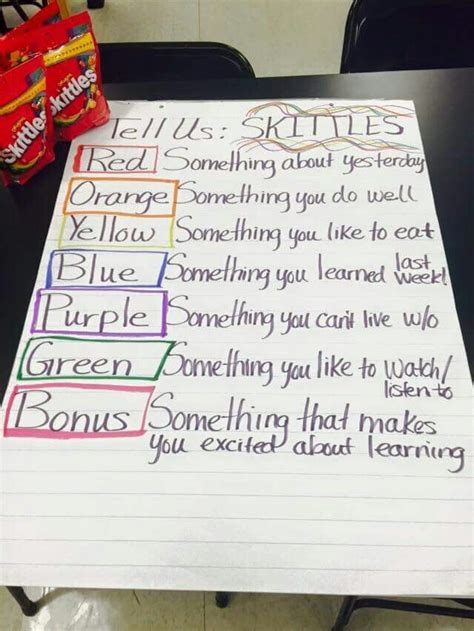 Skittles
Skittles
Tell Us: SKITTLES
Red Something about yesterday
Orange Something you do well
Yellow Something you like to eat
Blue Something you learned last week!
Purple Something you can't live w/o
Green Something you like to watch/
listen to
Bonus Something that makes
you excited about learning